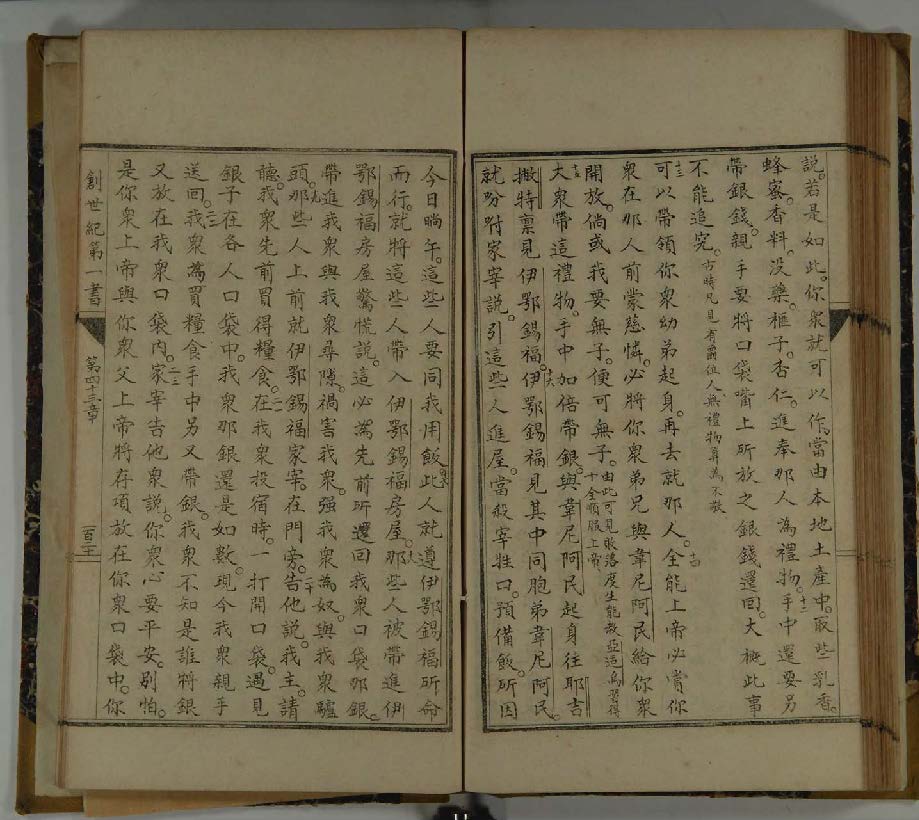 說。若是如此。你衆就可以作。當由本地土產中。取些乳香。
蜂蜜。香料。沒藥。榧子。杏仁。進奉那人為禮物。十二手中還要另
帶銀錢。親手要將口袋嘴上所放之銀錢還回。大概此事
不能追究。古時凡見有爵位人無禮物算為不敬
十三可以帶領你衆幼弟起身。再去就那人。十四全能上帝必賞你
衆在那人前蒙慈憐。必將你衆弟兄與韋尼阿民給你衆
開放。倘或我要無子。便可無子。由此可見
十全順服上帝
十五大衆帶這禮物。手中加倍帶銀。與韋尼阿民起身往耶吉
撒特禀見伊鄂錫福。十六伊鄂錫福見其中同胞弟韋尼阿民。
就吩咐家宰說。引這些人進屋。當殺宰牲口。預備飯。所因
今日晌午。這些人要同我用飯。十七此人就遵伊鄂錫福所命
而行。就將這些人帶入伊鄂錫福房屋。十八那些人被帶進伊
鄂錫福房屋驚慌說。這必為先前所還回我衆口袋那銀。
帶進我衆與我衆尋隙。禍害我衆。強我衆為奴。與我衆驢
頭。十九那些人上前就伊鄂錫福家宰在門旁。告他說。二十我主。請
聽。我衆先前買得糧食。二一在我衆投宿時。一打開口袋。遇見
銀子在各人口袋中。我衆那銀還是如數。現今我衆親手
送回。二二我衆為買糧食手中另又帶銀。我衆不知是誰將銀
又放在我衆口袋內。二三家宰告他衆說。你衆心要平安。別怕。
是你衆上帝與你衆父上帝將存項放在你衆口袋中。你
創世紀第一書
第四十三章